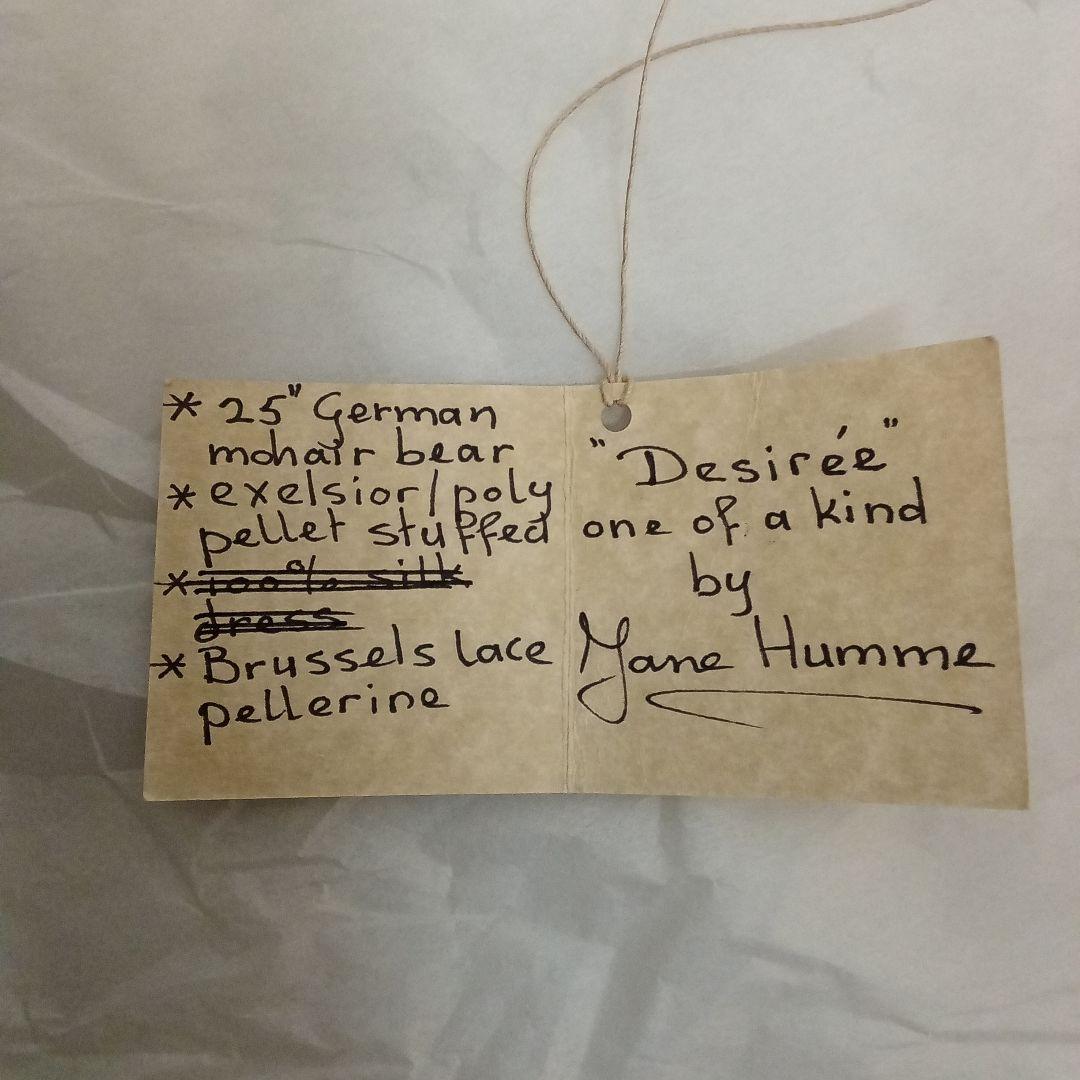 * 25" German
mohair bear
* exelsior/poly
pellet stuffed
* 100% silk
dress
* Brussels lace
pellerine
"Desirée"
one of a kind
by
Jane Humme